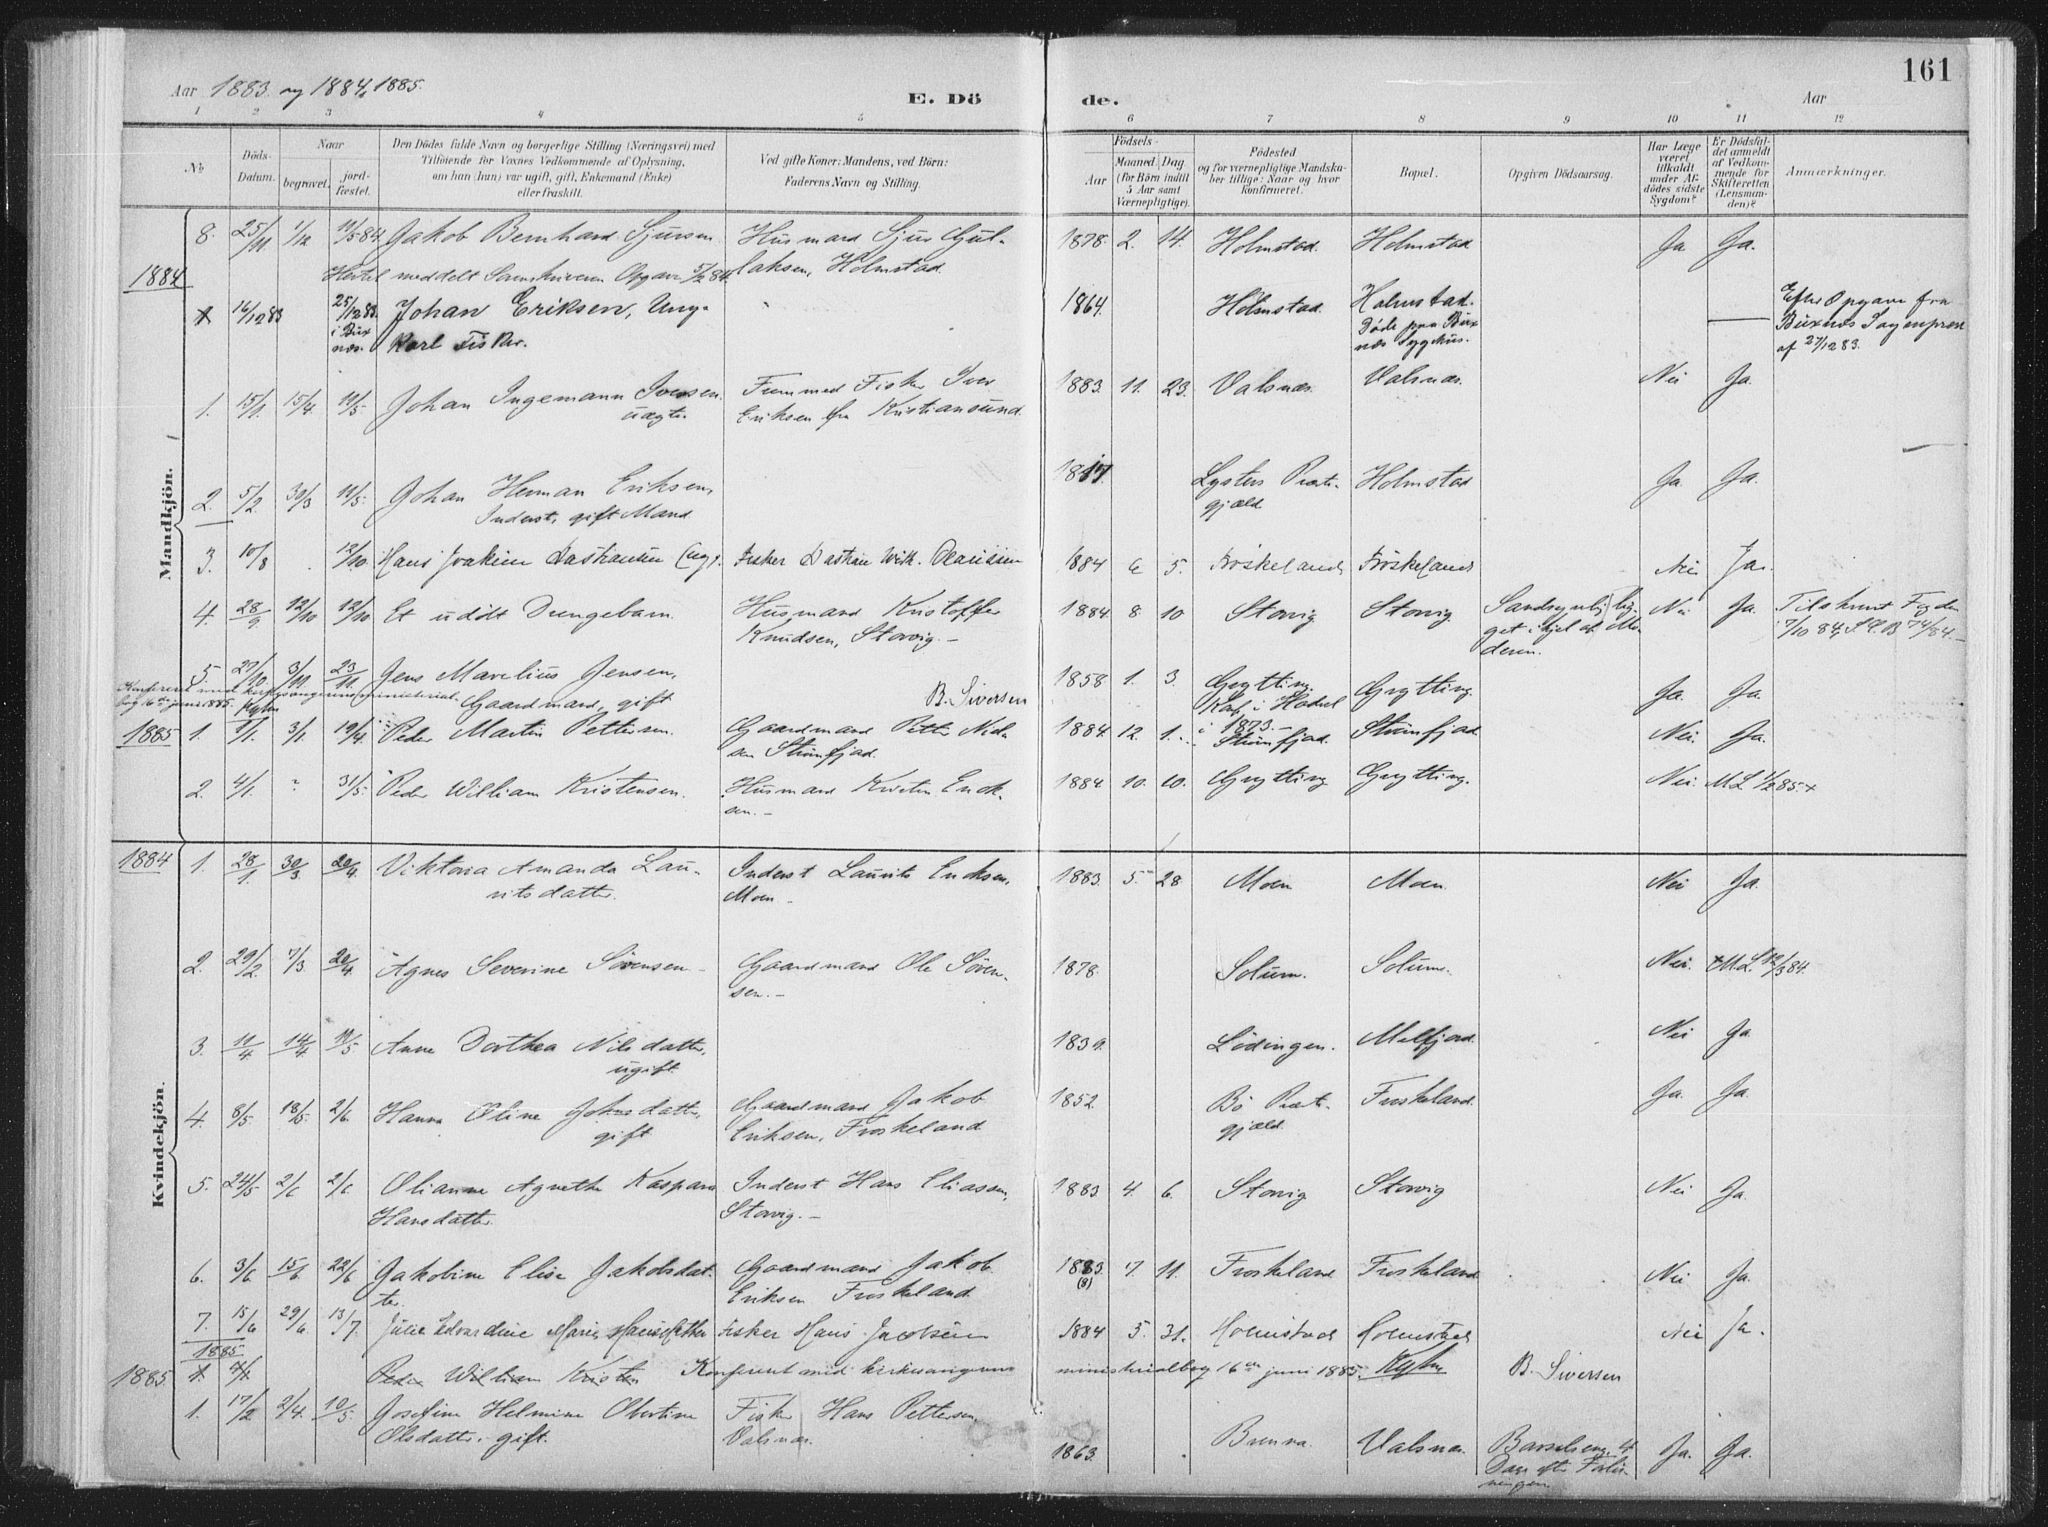 Aar 1883 og 1884, 1885.
E. Dö
de.
Aar
161
1 2 3 4 5 6 7 8 9 10 11 12
No
Döds-Datum.
Naar
begravet.
jord-fæstet.
Den Dödes fulde Navn og borgerlige Stilling (Næringsvei) med
Tilföiende for Voxnes Vedkommende af Oplysning,
om han (hun) var ugift, gift, Enkemand (Enke)
eller fraskilt.
Ved gifte Koner: Mandens, ved Börn:
Faderens Navn og Stilling.
Födsels-
Aar
Maaned
Dag
(for Börn indtil
5 Aar samt
Værnepligtige).
Födested
og for værnepligtige Mandska-
ber tillige: Naar og hvor
konfirmeret.
Bopæl.
Opgiven Dödsaarsag.
Har Læge
været
tilkaldt
under Af-
dödes sidste
Sygdom?
Er Dödsfal-
det anmeldt
af Vedkom-
mende for
Skifteretten
(Lensman-
den)?
Anmærkninger.
Mandkjön.
8. 25/11 1/12 11/5 84 Jakob Bernhard Sjursen Husmand Sjur Gul- 1878. 2. 14. Holmstad. Holmstad Ja Ja.
laksen, Holmstad.
1884
meddelt Sorenskriveren Opgave
16/12 83 25/12 83. Johan Eriksen, Ung- 1864. Holmstad. Holmstad. Efter Opgave fra
i Bux
næs. Karl Fisker. Døde paa Bux
næs Sygehus. Buxnæs Sogneprest
af 27/12 83.
1. 15/1. 15/4. 11/5. Johan Ingemann Iversen Fremmed Fisker Iver 1883. 11. 23. Valsnæs. Valsnæs. Nei Ja.
uægte Eriksen fra Kristiansund.
2. 5/2 30/3 11/5. Johan Herman Eriksen, 1817. Lysters Præste- Holmstad Ja. Ja.
Inderst, gift Mand gjæld
3. 10/8 12/10 Hans Joakim Dastiansen (ug). Fisker Dastian With. Olausen 1884 6 5. Frøskeland Frøskeland Nei Ja.
4. 28/9. 12/10 12/10 Et udöbt Drengebarn. Husmand Kristoffer 1884. 8. 10 Storvig Storvig. Sandsynligvis lig- Nei Ja.
Knudsen, Storvig. get ihjel af Mo-
deren.
5. 27/10. 3/11. 23/11. Jens Marelius Jensen, 1858 1. 3. Grytting. Grytting. Ja. Ja.
Gaardmand, gift Konf. i Hadsel
i 1873.
B. Siversen
1885 1. 1/1. 3/1. 19/4. Peder Martin Pettersen. Gaardmand Petter Niel- 1884. 12. 1. Strømfjord. Strømfjord Nei. Ja.
sen Strømfjord.
2. 4/1. ? 31/5. Peder William Kristensen. Husmand Kristen Erik- 1884 10. 10. Grytting Grytting. Nei. ML 1/2 85.
sen.
Kvindekjön.
1884 1. 28/1. 30/3 20/4. Viktoria Amanda Lau- Inderst Laurits Eriksen, 1883. 5. 28. Moen Moen. Nei Ja.
ritsdatter. Moen
2. 29/2. 7/3. 20/4. Agnes Severine Sørensen Gaardmand Ole Søren- 1878. Solum. Solum. Nei. M.L. 12/3 84.
sen.
3. 11/4 14/4 11/5 Anne Dorthea Nilsdatter, 1839. Lødingen. Melfjord. Nei Ja.
ugift.
4. 8/5. 18/5. 2/6. Hanna Oline Johnsdatter, Gaardmand Jakob 1852. Bø Præste- Froskeland. Ja. Ja.
gift Eriksen, Froskeland gjæld.
5. 24/5 2/6 2/6 Olianne Agnethe Kaspara Inderst Hans Eliassen, 1883 4. 6. Storvig Storvig Nei Ja.
Hansdatter. Storvig.
6. 3/6 15/6 22/6 Jakobine Elise Jakobsdat- Gaardmand Jakob 1883. 7. 11. Froskeland Froskeland Nei Ja.
ter. Eriksen Froskeland. (8)
7. 15/6 29/6 13/7. Julie Edvardine Marie Hansdatter Fisker Hans Jacobsen 1884 5. 31. Holmstad Holmstad Nei Ja.
1885
1885. Peder William Kristen Konferert med kirkesangerens ministerialbog 16de juni 1885. B. Siversen
1. 17/2 2/4. 10/5 Josefine Helmine Obertine Fisker Hans Pettersen, 1863. Brenna. Valsnæs. Barselseng, 4 Ja. Ja.
Olsdatter, gift. Valsnæs. Dage efter Forløs-
ningen